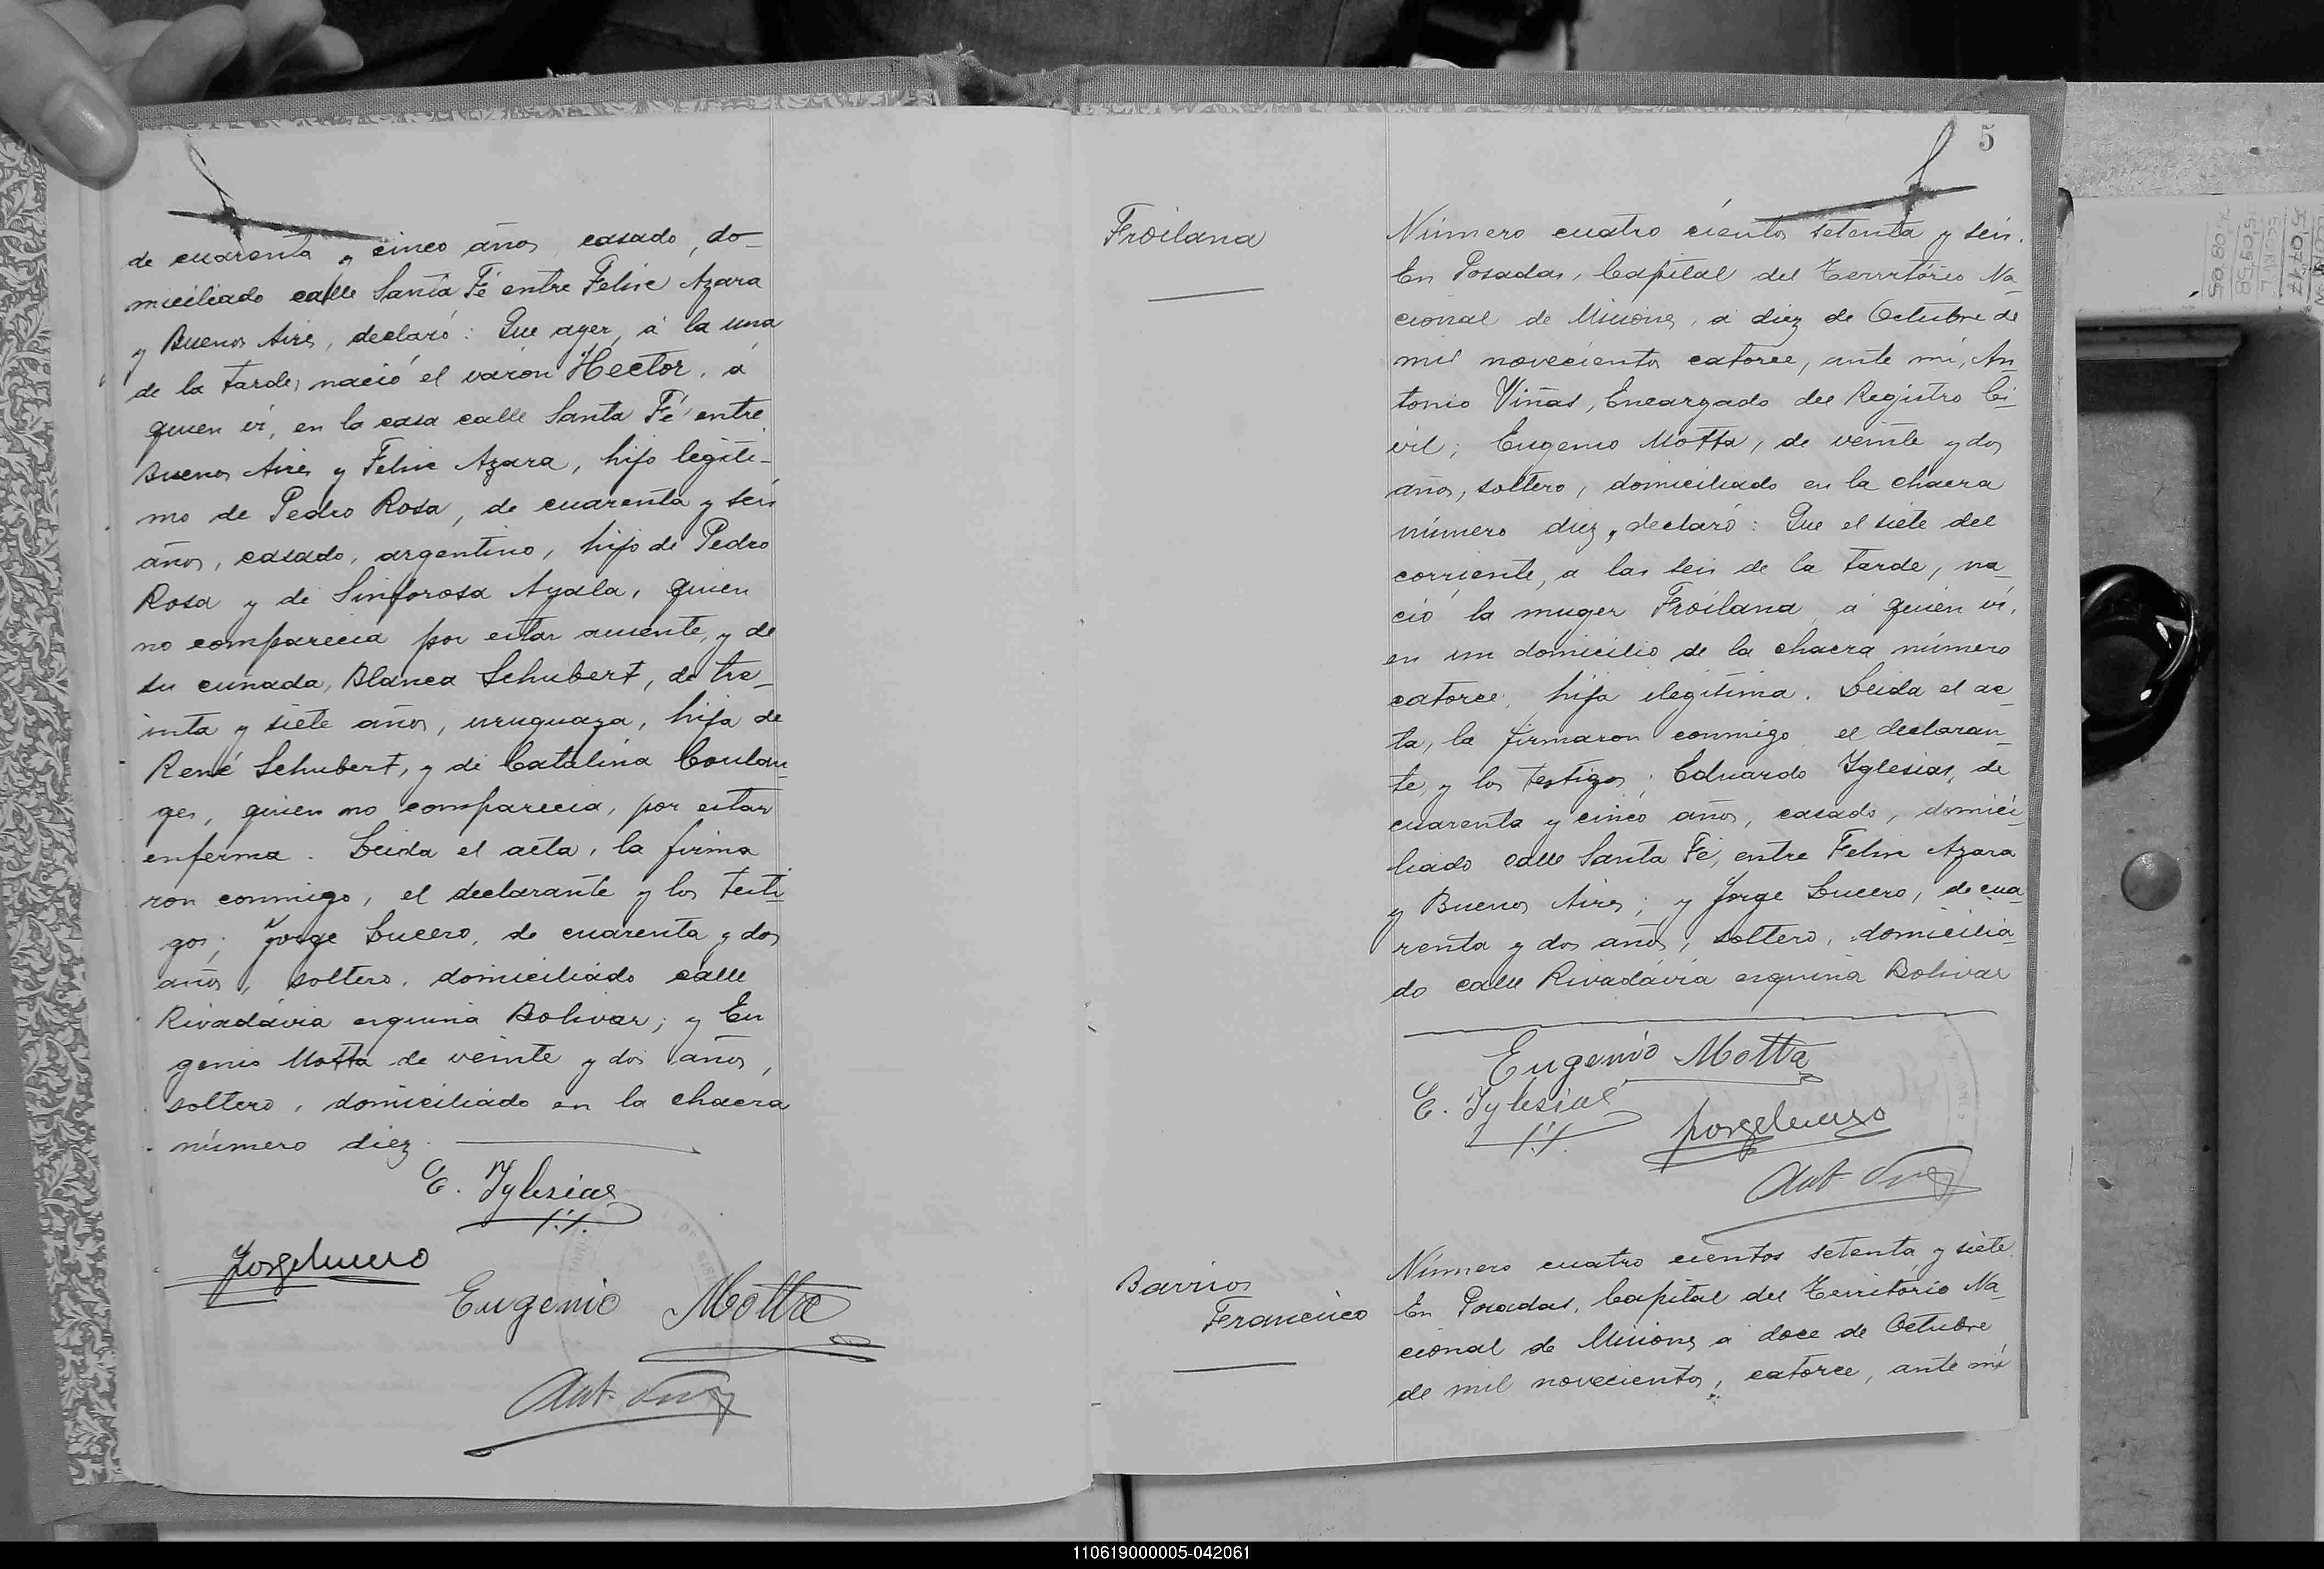 de cuarenta y cinco años, casado, do-
miciliado calle Santa Fé entre Felix Azara
y Buenos Aires, declaró: Que ayer, á la una
de la tarde, nació el varón Héctor, á
quien ví, en la casa calle Santa Fé entre
Buenos Aires y Felix Azara, hijo legíti-
mo de Pedro Rosa, de cuarenta y seis
años, casado, argentino, hijo de Pedro
Rosa y de Sinforosa Ayala, quien
no comparecia por estar ausente, y de
su cuñada, Blanca Schubert, de tre-
inta y siete años, uruguaya, hija de
René Schubert, y de Catalina Coulan-
ges, quien no comparecia, por estar
enferma. Leida el acta, la firma
ron conmigo, el declarante y los testi-
gos; Jorge Lucero, de cuarenta y dos
años, soltero, domiciliado calle
Rivadávia esquina Bolivar; y Eu
genio Motta de veinte y dos años,
soltero, domiciliado en la chacra
número diez.
E. Yglesias
Jorge Lucero
Eugenio Motta
5
Froilana
Número cuatro cientos setenta y seis.
En Posadas, Capital del Território Na-
cional de Misiones, á diez de Octubre de
mil novecientos catorce, ante mi, An-
tonio Viñas, Encargado del Registro Ci-
vil; Eugenio Motta, de veinte y dos
años, soltero, domiciliado en la chacra
número diez, declaró: Que el siete del
corriente, a las seis de la tarde, na-
ció la muger Froilana, á quien ví,
en un domicilio de la chacra número
catorce, hija ilegítima. Leida el ac-
ta, la firmaron conmigo, el declaran-
te y los testigos; Eduardo Yglesias, de
cuarenta y cinco años, casado, domici-
liado calle Santa Fé, entre Felix Azara
y Buenos Aires; y Jorge Lucero, de cua-
renta y dos años, soltero, domicilia-
do calle Rivadávia esquina Bolivar
Eugenio Motta
E. Yglesias
Jorge Lucero
Barrios
Francisco
Número cuatro cientos setenta y siete.
En Posadas, Capital del Território Na-
cional de Misiones á doce de Octubre
de mil novecientos, catorce, ante mi
110619000005-042061